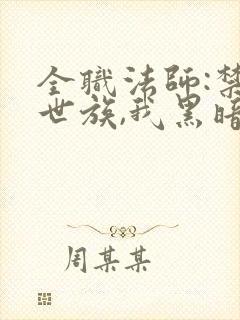 全職法師:禁
世族,我黑暗
周某某